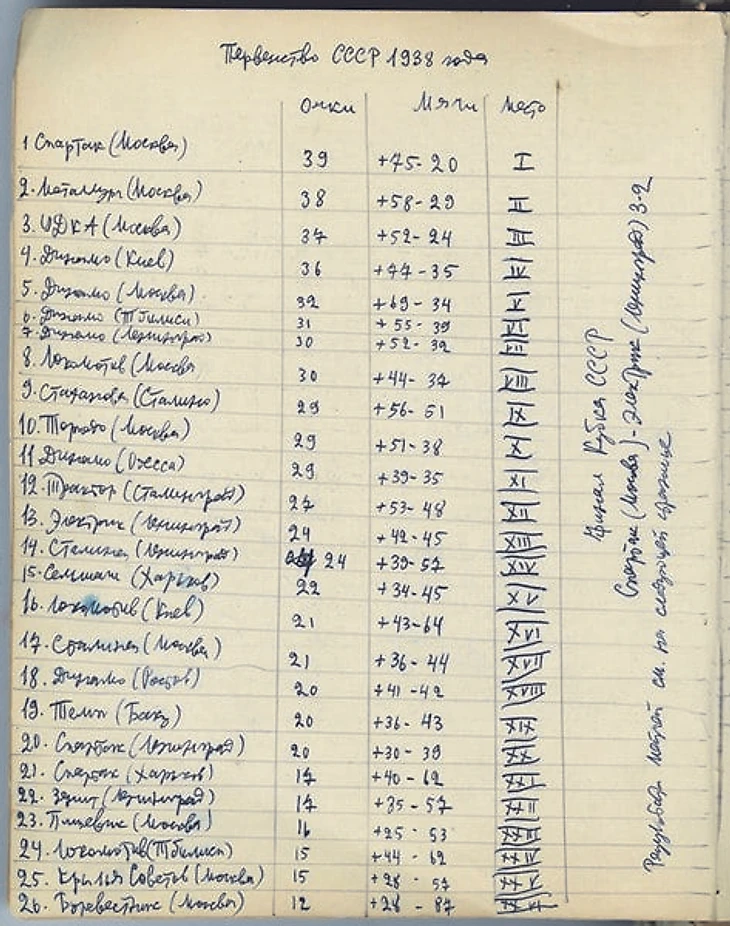 Первенство СССР 1938 года
очки мячи место
1 Спартак (Москва) 39 +75-20 I
2. Металлург (Москва) 38 +58-29 II
3. ЦДКА (Москва) 37 +52-24 III
4. Динамо (Киев) 36 +77-35 IV
5. Динамо (Москва) 32 +69-34 V
6. Динамо (Тбилиси) 31 +55-39 VI
7. Динамо (Ленинград) 30 +52-32 VII
8. Локомотив (Москва 30 +44-37 VIII
9. Стахановец (Сталино) 29 +56-51 IX
10. Торпедо (Москва) 29 +51-38 X
11 Динамо (Одесса) 29 +39-35 XI
12. Трактор (Сталинград) 27 +53-48 XII
13. Электрик (Ленинград) 24 +42-45 XIII
14. Сталинец (Ленинград) 24 +39-57 XIV
15. Сельмаш (Харьков) 22 +34-45 XV
16. Локомотив (Киев) 21 +43-64 XVI
17. Сталинец (Москва) 21 +36-44 XVII
18. Динамо (Ростов) 20 +41-42 XVIII
19. Темп (Баку) 20 +36-43 XIX
20. Спартак (Ленинград) 20 +30-39 XX
21. Спартак (Харьков) 17 +40-62 XXI
22. Зенит (Ленинград) 17 +35-57 XXII
23. Пищевик (Москва) 16 +25-53 XXIII
24. Локомотив (Тбилиси) 15 +44-62 XXIV
25. Крылья Советов (Москва) 15 +28-57 XXV
26. Буревестник (Москва) 12 +28-87 XXVI
Финал Кубка СССР
Спартак (Москва) - Электрик (Ленинград) 3-2
матчей см. на следующей странице